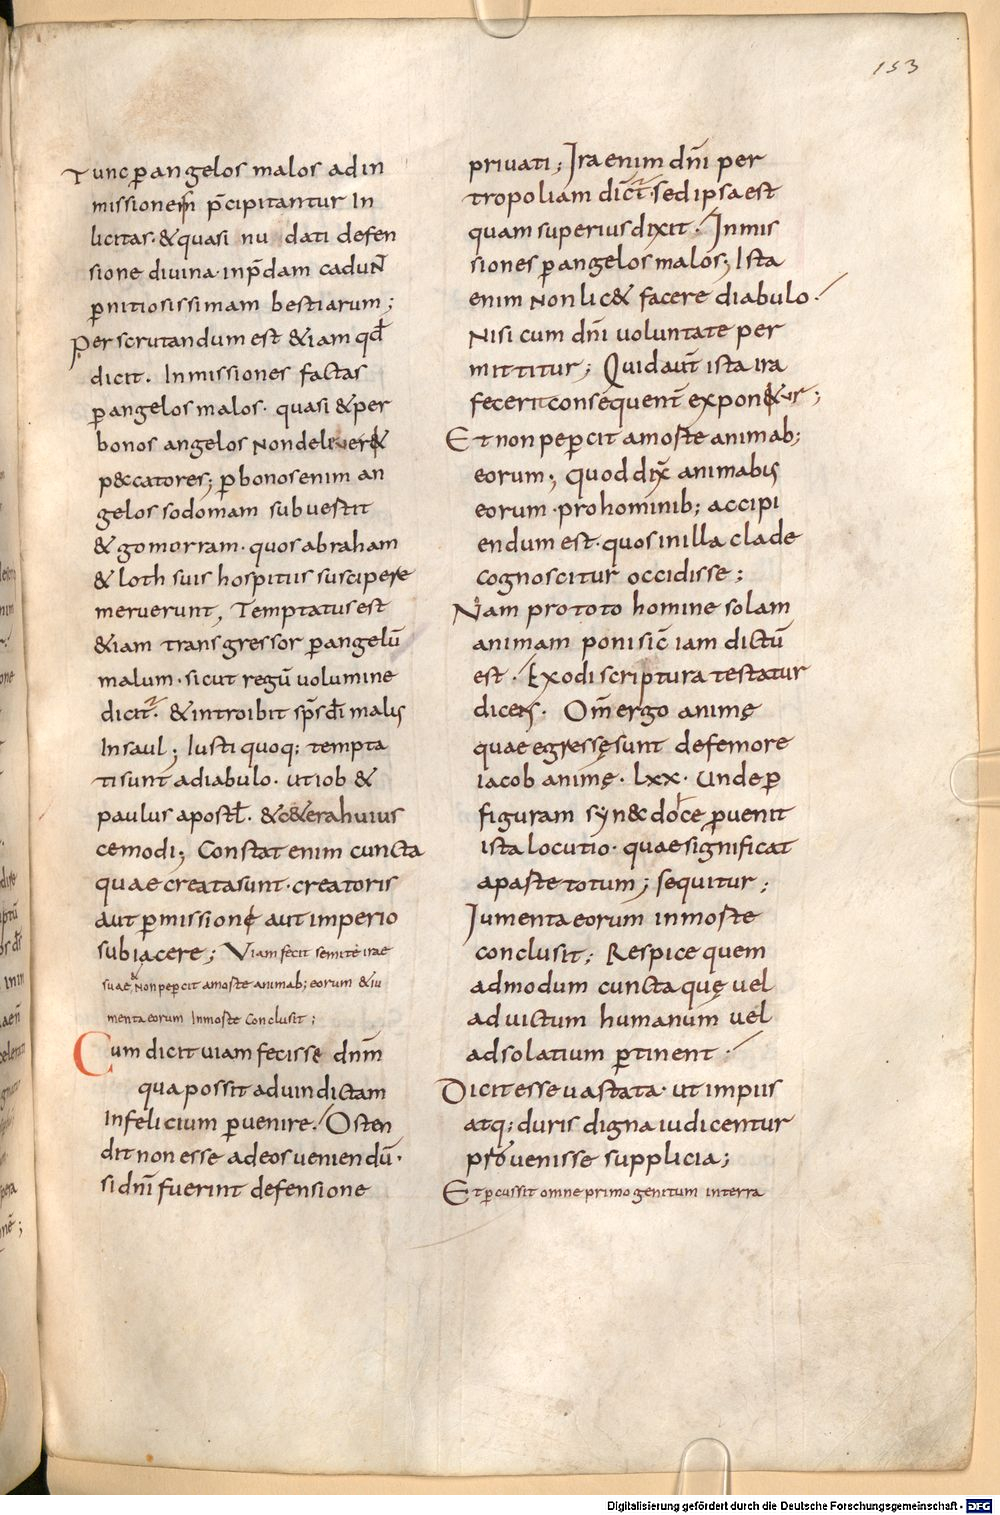 153
Tunc p̱ angelos malos ad in
missionem p̄cipitantur In
licitas · & quasi nu dati defen
sione divina · in p̄dam cadun̄
p̱nitiosissimam bestiarum ;
Perscrutandum est &iam qđ
dicit . Inmissiones factas
p̱ angelos malos · quasi & per
bonos angelos Non deliver&
p&ccatores ; p̱ bonos enim an
gelos sodomam subvestit
& gomorram · quos abraham
& loth suis hospitiis suscipere
meruerunt , Temptatus est
&iam transgressor p̱ angelū
malum · sicut regū volumine
dicit · & introibit sp̄s dī malis
In saul ; Iusti quoq ; tempta
ti sunt a diabulo · ut iob &
paulus apostł · & c&era huius
cemodi ; Constat enim cuncta
quae creata sunt · creatoris
aut p̱missione aut imperio
subiacere ; Viam fecit semite irae
suae & Non pep̱cit a morte animab ; eorum & iu
menta eorum In morte Conclusit ;
Cum dicit viam fecisse dn̄m
qua possit ad vindictam
Infelicium p̱venire . Osten
dit non esse ad eos veniendū ·
si dn̄i fuerint defensione
privati ; Ira enim dn̄i per
tropoliam dict̄ sed ipsa est
quam superius dixit · Inmis
siones p̱ angelos malos ; Ista
enim Non lic& facere diabulo ·
Nisi cum dn̄i voluntate per
mittitur ; Quid aut̄ ista ira
fecerit consequent̄ expon&ur ;
Et non pep̱cit a morte animab ;
eorum ; quod dix̄ animabus
eorum · pro hominib ; accipi
endum est · quos in illa clade
cognoscitur occidisse ;
Nam pro toto homine solam
animam poni sic̄ iam dictū
est · Exodi scriptura testatur
dicens · Om̄ ergo animę
quae egressę sunt de femore
iacob animę · lxx · unde p̱
figuram synecdoc̄e p̱venit
ista locutio · quae significat
a parte totum ; sequitur ;
Iumenta eorum in morte
conclusit ; Respice quem
admodum cuncta quę vel
ad victum humanum vel
ad solatium p̱tinent ·
Dicit esse vastata · ut impiis
atq ; duris digna iudicentur
provenisse supplicia ;
Et p̱cussit omne primogenitum in terra
Digitalisierung gefördert durch die Deutsche Forschungsgemeinschaft - DFG